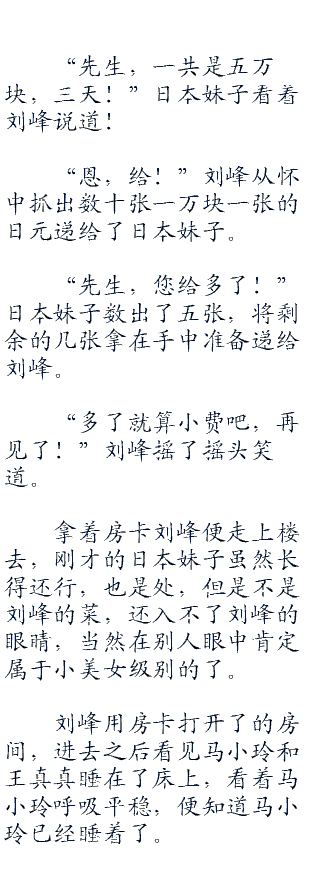 “先生，一共是五万
块，三天！”日本妹子看着
刘峰说道！
“恩，给！” 刘峰从怀
中抓出数十张一万块一张的
日元递给了日本妹子。
“先生，您给多了！”
日本妹子数出了五张，将剩
余的几张拿在手中准备递给
刘峰。
“多了就算小费吧，再
见了！” 刘峰摇了摇头笑
道。
拿着房卡刘峰便走上楼
去，刚才的日本妹子虽然长
得还行，也是处，但是不是
刘峰的菜，还入不了刘峰的
眼睛，当然在别人眼中肯定
属于小美女级别的了。
刘峰用房卡打开了的房
间，进去之后看见马小玲和
王真真睡在了床上，看着马
小玲呼吸平稳，便知道马小
玲已经睡着了。